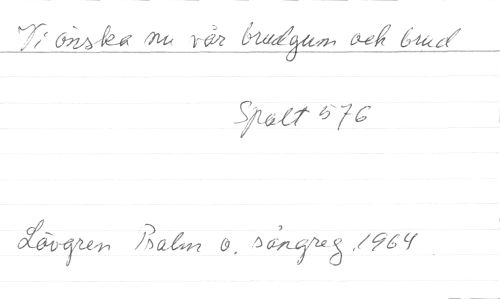 Vi önska nu vår brudgum och brud
Spalt 576
Lövgren Psalm o. sångreg. 1964